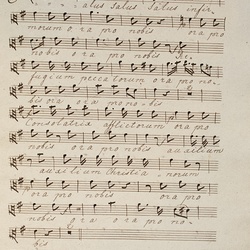 alus salus salus infir,
morum ora pro nobis ora pro
nobis ora pro nobis Re,
fugium peccatorum ora pro no,
bis ora ora pro no bis
Consolatrix afflictorum ora pro
nobis ora pro nobis auxilium
auxilium Christia norum
ora pro nobis ora pro
nobis ora ora pro no,
bis